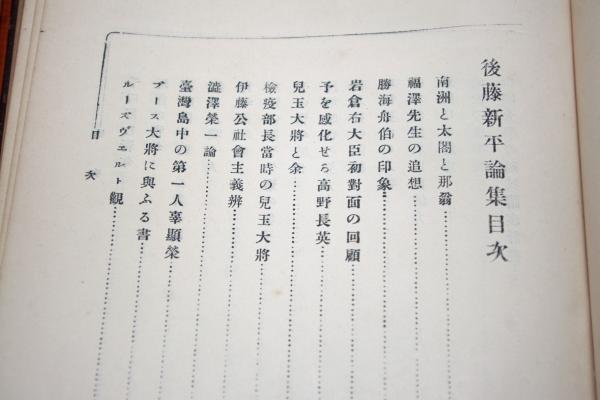 後藤新平論集目次
南洲と太閤と那翁
福澤先生の追想
勝海舟伯の印象
岩倉右大臣初對面の回顧
予を感化せる高野長英
兒玉大將と余
檢疫部長當時の兒玉大將
伊藤公社會主義辨
澁澤榮一論
臺灣島中の第一人辜顯榮
ブース大將に與ふる書
ルーズヴェルト觀
目次